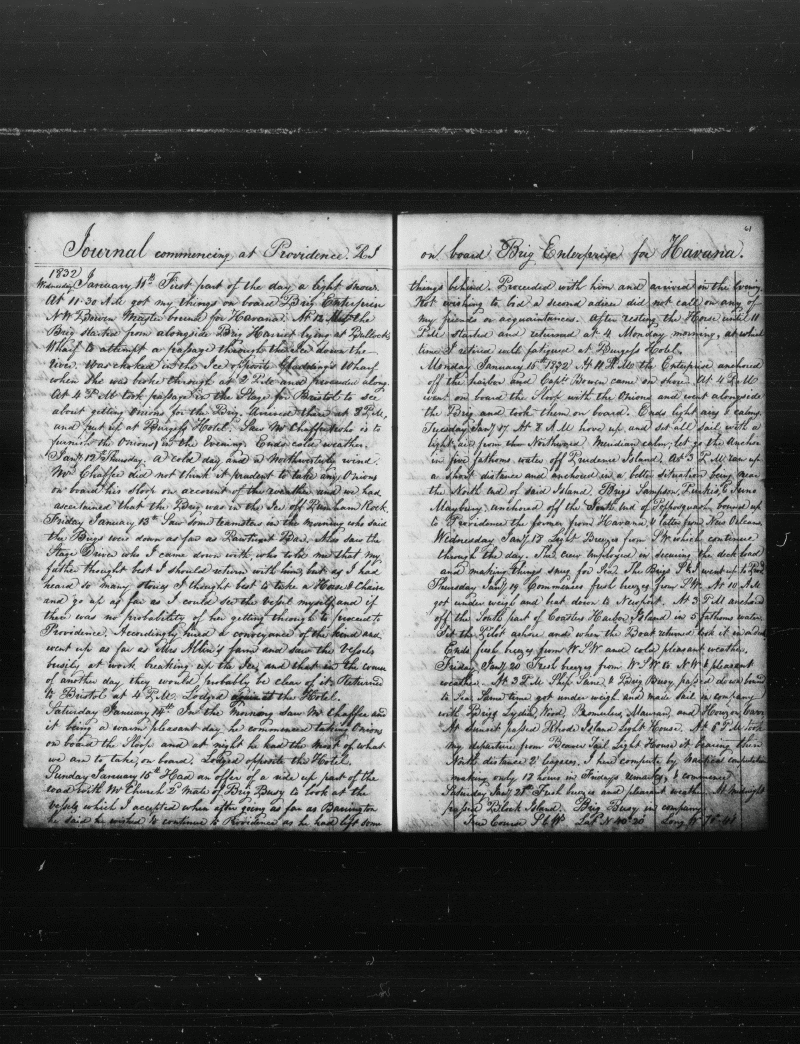 Journal commencing at Providence. R I
1832
Wednesday January 11th First part of the day a light snow.
At 11.30 A.M got my things on board Brig Enterprise
N W Bowen Master bound for Havana. At 12 the
Brig started from alongside Brig Harriot lying at Bullocks
Wharf to attempt a passage through the Ice down the
river. Was choked in the Ice opposite Gladdings Wharf
when she was broke through at 2 P.M and proceeded along.
At 4 P.M took passage in the Stage for Bristol to see
about getting Onions for the Brig. Arrived there at 8 P.M.
and put up at Burgess Hotel. Saw Mr Chaffee who is to
furnish the Onions in the Evening. Ends cold weather.
Jany 12th Thursday. A cold day and a Northwesterly wind.
Mr Chaffee did not think it prudent to take any Onions
on board his Sloop on account of the weather and we had
ascertained that the Brig was in the Ice off Rock.
Friday January 13th Saw some teamsters in the morning who said
the Brigs were down as far as Pawtuxet Bar. Also saw the
Stage Driver who I came down with who told me that my
father thought best I should return with him, but as I had
heard so many stories I thought best to take a Horse & Chaise
and go up as far as I could see the Vessel myself and if
there was no probability of her getting through to proceed to
Providence. Accordingly hired a conveyance of the kind and
went up as far as Mrs Allin's farm and saw the Vessels
busily at work breaking up the Ice, and that in the course
of another day they would probably be clear of it. Returned
to Bristol at 4 P.M. Lodged again at the Hotel.
Saturday January 14th In the morning saw Mr Chaffee and
it being a warm pleasant day he commenced taking Onions
on board the Sloop and at night he had the most of what
we are to take, on board. Lodged opposite the Hotel.
Sunday January 15th Had an offer of a ride up part of the
road with Mr Church 2d Mate of Brig Busy to look at the
Vessels which I accepted when after going as far as Barrington
he said he wished to continue to Providence as he had left some
61
on board Brig Enterprise for Havana.
things behind. Proceeded with him and arrived in the Evening.
Not wishing to bid a second adieu did not call on any of
my friends or acquaintances. After resting the Horse until 11
P.M started and returned at 4 Monday morning, at which
time I retired well fatigued at Burgess Hotel.
Monday January 16th 1832 At 11 A.M the Enterprise anchored
off the harbor and Capt. Bowen came on shore. At 4 P.M
went on board the Sloop with the Onions and went alongside
the Brig and took them on board. Ends light airs & calms.
Tuesday Jany 17. At 8 A.M hove up, and set all sail with a
light air from the Northward. Meridian calm; let go the Anchor
in five fathoms water off Prudence Island. At 3 P.M ran up
a short distance and anchored in a better situation being near
the North End of said Island. Brigs Sampson, & Juno
Maybury, anchored off the South End of Poppasquash bound up
to Providence the former from Havana, & latter from New Orleans.
Wednesday Jany 18 Light Breezes from SW. which continue
through the day. The crew employed in securing the deck load
and making things snug for Sea. The Brigs S & J went up to Provd
Thursday Jany 19 Commences fresh breezes from SW. At 10 A.M
got under weigh and beat down to Newport. At 3 P.M anchord
off the South part of Coasters Harbor Island in 5 fathoms water.
Set the Pilot ashore and when the Boat returned took it in
Ends fresh breezes from WSW and cold pleasant weather.
Friday Jany 20 Fresh breezes from WSW to NW & pleasant
weather. At 3 P.M Ship Jane & Brig Busy passed down bound
to Sea. Same time got under weigh and made sail in company
with Brigs Lydia, Wood, Romulus, Mauran, and Horizon,
At sunset passed Rhode Island Light House. At 6 P.M took
my departure from Beaver Tail Light House it bearing then
North distance 2 leagues. I here compute by Nautical
making only 18 hours in Fridays remarks, & commence
Saturday Jany 21st Fresh breezes and pleasant weather. At Midnight
passed Block Island. Brig Busy in company
True Course Lat N 40° 26' Long W 71-41